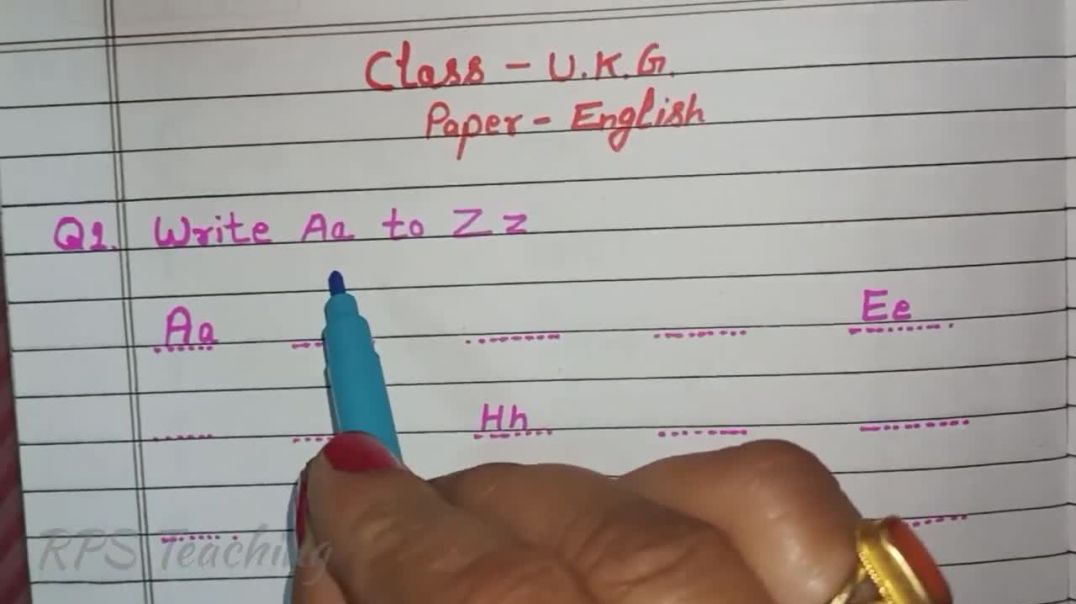 Class - U.K.G.
Paper - English
Q1. Write Aa to Zz
Aa Ee
Hh
RPS Teaching